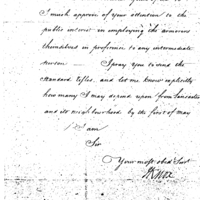 I much approve of your attention to the
public interest in employing the armories
themselves in preference to any intermediate
person — I pray you to send the
standard rifles, and let me know explicitly
how many I may depend upon from Lancaster
and its neighbourhood by the first of May
I am
Sir
Your most obed Serv